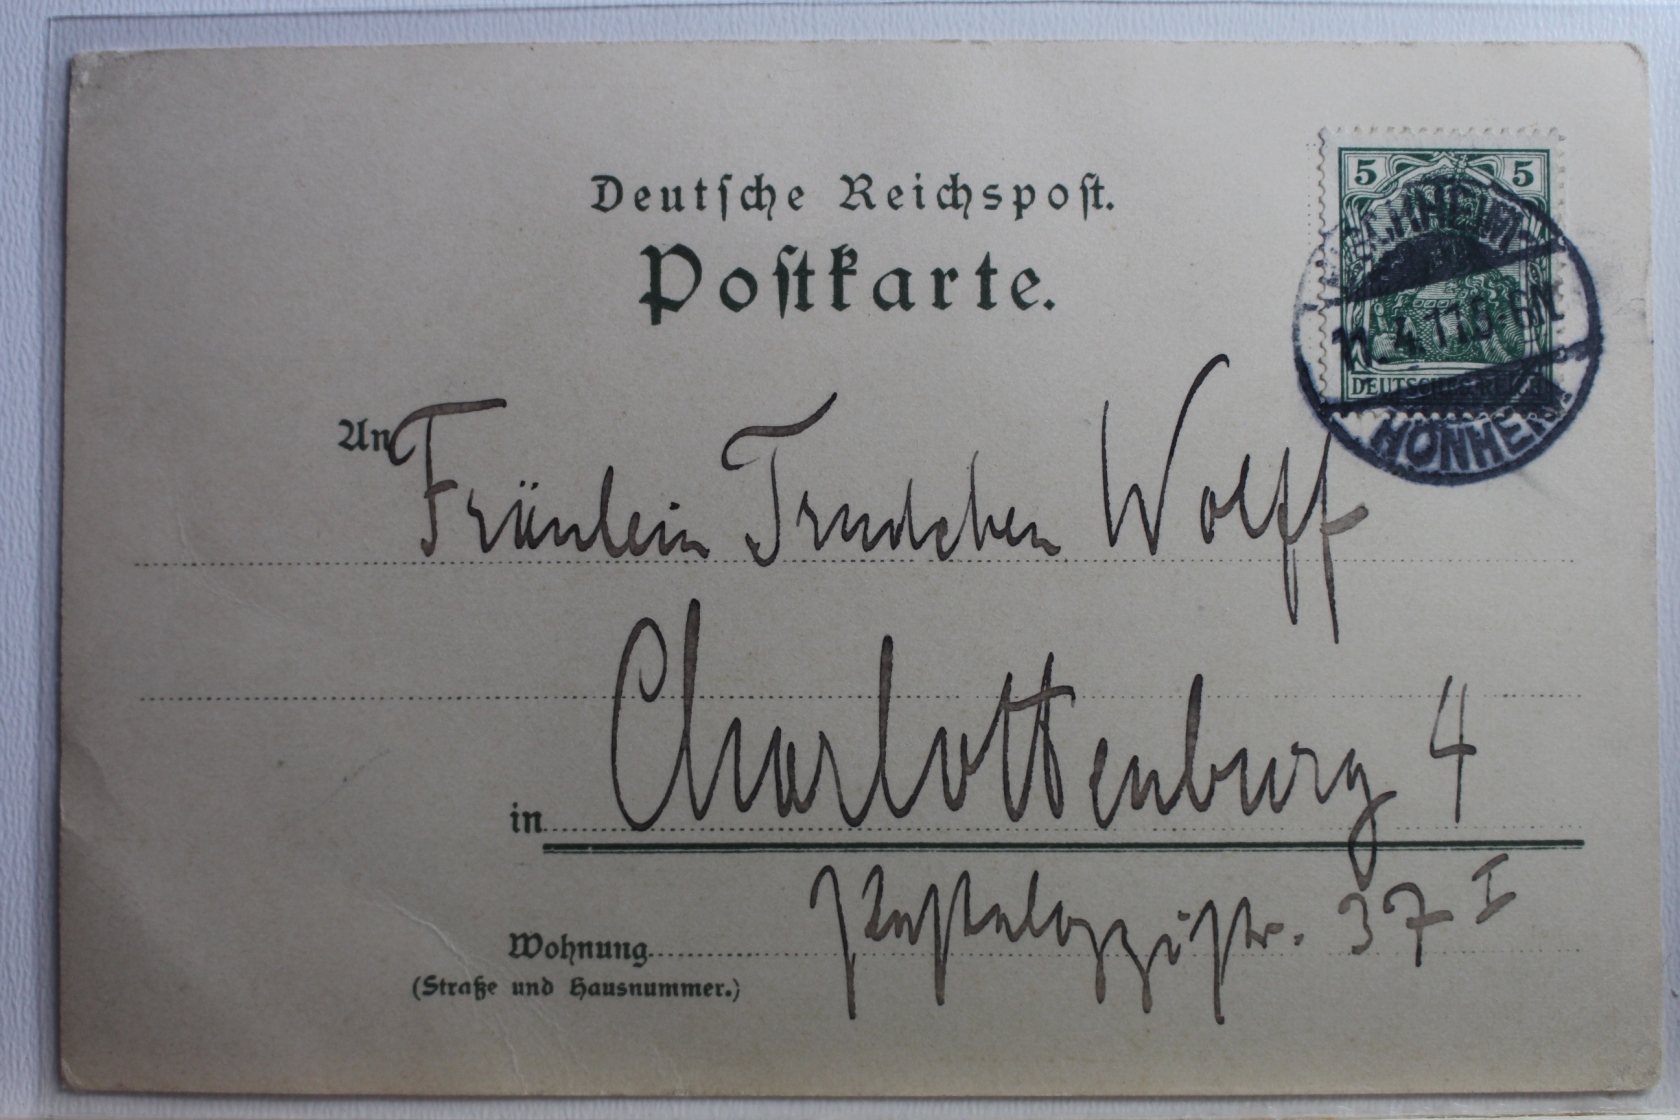 Deutsche Reichspost.
Postkarte.
5 5
11.4.11.5-6N
DEUTSCHES REICH
An Fräulein Trudchen Wolff
in Charlottenburg 4
Wohnung Pestalozzistr. 37 I
(Straße und Hausnummer.)